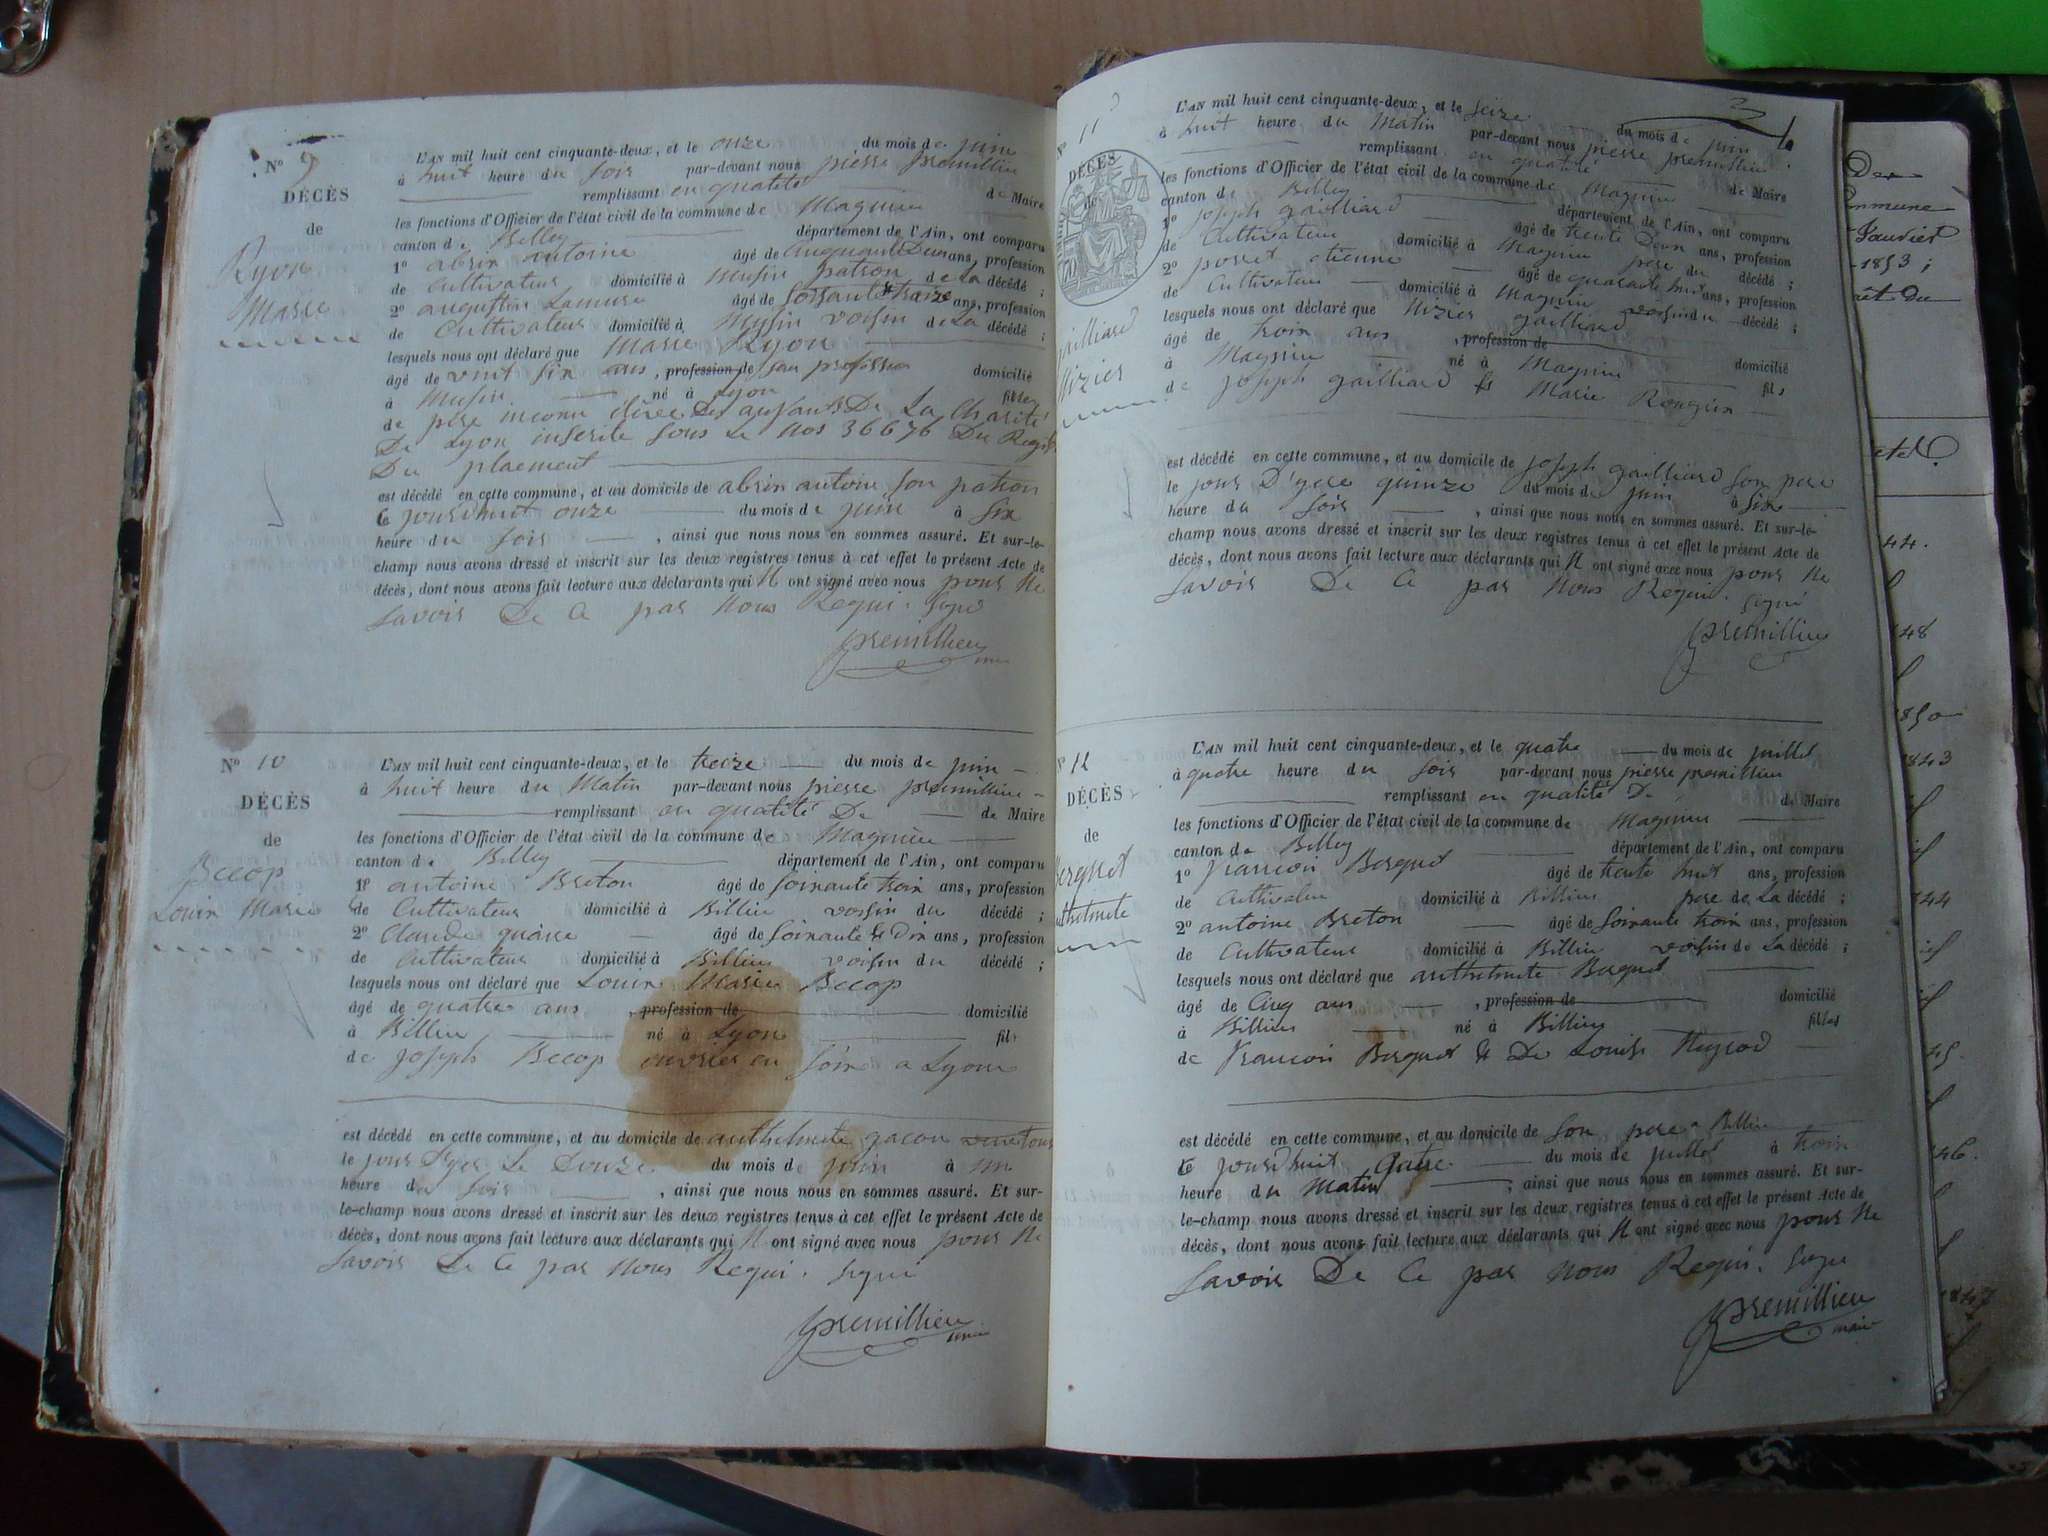 N° 9
DÉCÈS
de
Lyon
Marie
L'AN mil huit cent cinquante-deux, et le onze du mois de juin
à huit heure du soir par-devant nous pierre premillieu
remplissant en qualité de Maire
les fonctions d'Officier de l'état civil de la commune de Magnieu
canton de Belley département de l'Ain, ont comparu
1° abrin antoine âgé de Cinquante Deux ans, profession
de Cultivateur domicilié à Musin patron de La décédé ;
2° augustin Lamure âgé de Soissante & traize ans, profession
de Cultivateur domicilié à Musin voisin de La décédé ;
lesquels nous ont déclaré que Marie Lyon
âgé de vint six ans, profession de sans profession domicilié
à Musin né à Lyon filles
de père inconu élève Des anfants De La Charité
De Lyon inscrite sous Le Nos 36676 Du Regis
Du plaement
est décédé en cette commune, et au domicile de abrin antoine son patron
le jourdhuit onze du mois de juin à six
heure du soir , ainsi que nous nous en sommes assuré. Et sur-le-
champ nous avons dressé et inscrit sur les deux registres tenus à cet effet le présent Acte de
décès, dont nous avons fait lecture aux déclarants qui N ont signé avec nous pour Ne
savoir De Ce par Nous Requi. signé
premillieu
N° 10
DÉCÈS
de
Becop
Louis Marie
L'AN mil huit cent cinquante-deux, et le treize du mois de juin
à huit heure du Matin par-devant nous pierre premillieu
remplissant en qualité De de Maire
les fonctions d'Officier de l'état civil de la commune de Magnieu
canton de Belley département de l'Ain, ont comparu
1° antoine Breton âgé de Soixante trois ans, profession
de Cultivateur domicilié à Billieu voisin du décédé ;
2° Claude quarre âgé de Soixante & Dix ans, profession
de Cultivateur domicilié à Billieu voisin du décédé ;
lesquels nous ont déclaré que Louis Marie Becop
âgé de quatre ans , profession de domicilié
à Billieu né à Lyon fils
de joseph Becop ouvrier en soie a Lyon
est décédé en cette commune, et au domicile de anthelmete gacon
le jour D'yer Le Douze du mois de juin à un
heure du soir , ainsi que nous nous en sommes assuré. Et sur-
le-champ nous avons dressé et inscrit sur les deux registres tenus à cet effet le présent Acte de
décès, dont nous avons fait lecture aux déclarants qui N ont signé avec nous pour Ne
savoir De Ce par Nous Requi. signé
premillieu
N° 11
DÉCÈS
gailliard
Nizier
L'AN mil huit cent cinquante-deux, et le seize du mois de juin
à huit heure du Matin par-devant nous pierre premillieu
remplissant en qualité de Maire
les fonctions d'Officier de l'état civil de la commune de Magnieu
canton de Belley département de l'Ain, ont comparu
1° joseph gailliard âgé de trente Deux ans, profession
de Cultivateur domicilié à Magnieu pere du décédé ;
2° porret etienne âgé de quarante huit ans, profession
de Cultivateur domicilié à Magnieu voisin du décédé ;
lesquels nous ont déclaré que Nizier gailliard
âgé de trois ans , profession de domicilié
à Magnieu né à Magnieu fils
de joseph gailliard & Marie
est décédé en cette commune, et au domicile de joseph gailliard son pere
le jour D'yere quinze du mois de juin à six
heure du soir , ainsi que nous nous en sommes assuré. Et sur-le-
champ nous avons dressé et inscrit sur les deux registres tenus à cet effet le présent Acte de
décès, dont nous avons fait lecture aux déclarants qui N ont signé avec nous pour Ne
savoir De Ce par Nous Requi. signé
premillieu
N° 12
DÉCÈS
de
Berquet
anthelmete
L'AN mil huit cent cinquante-deux, et le quatre du mois de juillet
à quatre heure du soir par-devant nous pierre premillieu
remplissant en qualité De de Maire
les fonctions d'Officier de l'état civil de la commune de Magnieu
canton de Belley département de l'Ain, ont comparu
1° francois Berquet âgé de trente huit ans, profession
de Cultivateur domicilié à Billieu pere de La décédé ;
2° antoine Breton âgé de Soixante trois ans, profession
de Cultivateur domicilié à Billieu voisin de La décédé ;
lesquels nous ont déclaré que anthelmete Berquet
âgé de Cinq ans , profession de domicilié
à Billieu né à Billieu filles
de francois Berquet & De Louise
est décédé en cette commune, et au domicile de son pere a Billieu
le jourdhuit Quatre du mois de juillet à trois
heure du Matin , ainsi que nous nous en sommes assuré. Et sur-
le-champ nous avons dressé et inscrit sur les deux registres tenus à cet effet le présent Acte de
décès, dont nous avons fait lecture aux déclarants qui N ont signé avec nous pour Ne
savoir De Ce par nous Requi. signé
premillieu
maire
1853 ;
44.
48
1850
1843
44
45.
46.
1847